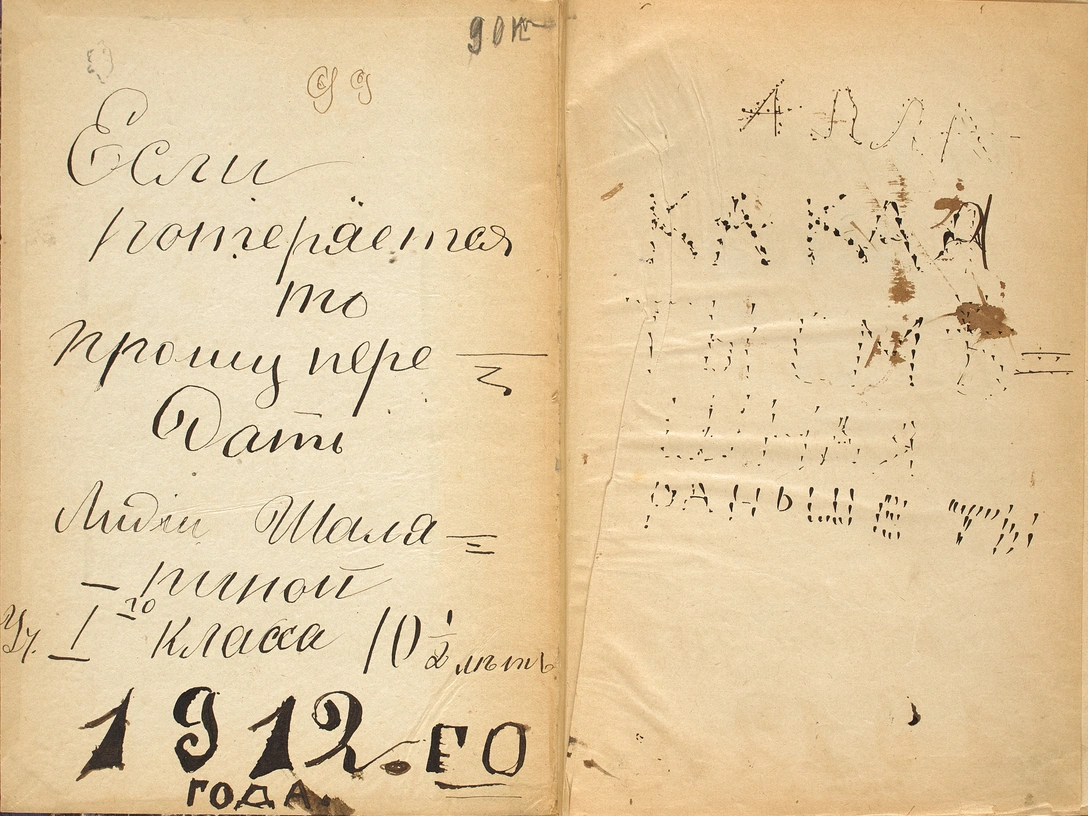 90к
99
Если
потеряется
то
прошу пере
Дать
Лидіи Шаля
пиной
Уч. I го класса 10 1/2 лѣтъ
1912.ГО
ГОДА.
КАКАЯ
РАНЬШЕ ТЫ